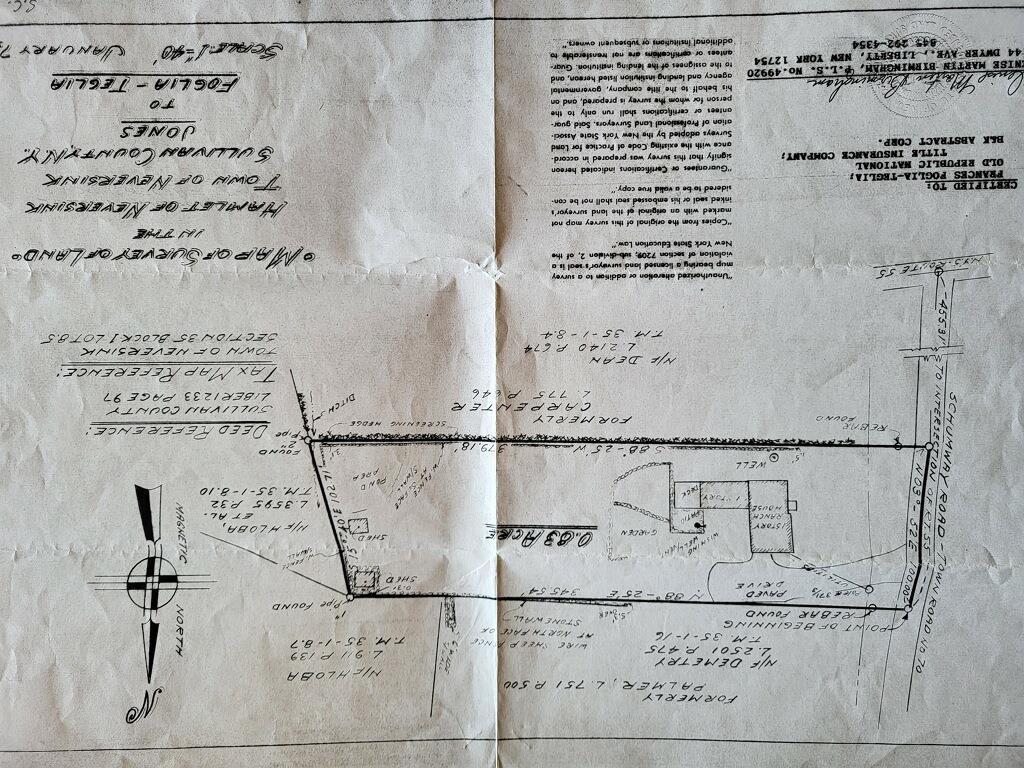 ○ MAP OF SURVEY OF LAND ○
IN THE
HAMLET OF NEVERSINK
TOWN OF NEVERSINK
SULLIVAN COUNTY, N.Y.
JONES
TO
FOGLIA - TEGLIA
SCALE: 1"=40
JANUARY 7,
CERTIFIED TO:
FRANCES FOGLIA-TEGLIA;
OLD REPUBLIC NATIONAL
TITLE INSURANCE COMPANY;
BLK ABSTRACT CORP.
"Unauthorized alteration or addition to a survey
map bearing a licensed land surveyor's seal is a
violation of section 7209, sub-division 2, of the
New York State Education Law."
"Copies from the original of this survey map not
marked with an original of the land surveyor's
inked seal or his embossed seal shall not be con-
sidered to be a valid true copy."
"Guarantees or Certifications indicated hereon
signify that this survey was prepared in accord-
ance with the existing Code of Practice for Land
Surveys adopted by the New York State Associ-
ation of Professional Land Surveyors. Said guar-
antees or certifications shall run only to the
person for whom the survey is prepared, and on
his behalf to the title company, governmental
agency and lending institution listed hereon, and
to the assignees of the lending institution. Guar-
antees or certifications are not transferable to
additional institutions or subsequent owners."
Denise Martin Birmingham
DENISE MARTIN BIRMINGHAM, P.L.S. No. 49920
44 DWYER AVE., LIBERTY, NEW YORK 12754
845 292-4354
DEED REFERENCE:
SULLIVAN COUNTY
LIBER 1233 PAGE 97
TAX MAP REFERENCE:
TOWN OF NEVERSINK
SECTION 35 BLOCK 1 LOT 8.5
N
MAGNETIC
NORTH
FORMERLY
PALMER, L. 751 P. 500
N/F DEMETRY
L. 2501 P. 475
T.M. 35-1-16
N/F HLOBA
L. 911 P. 139
T.M. 35-1-8.7
POINT OF BEGINNING
REBAR FOUND
WIRE SHEEP FENCE
AT NORTH FACE OF
STONEWALL
N 88°-25' E
345.54
1" PIPE FOUND
SHED
SHED
N/F HLOBA,
ET AL.
L. 3595 P. 32
T.M. 35-1-8.10
PAVED
DRIVE
1 STORY
RANCH
HOUSE
1 STORY
DECK
PATIO
WISHING
WELL
GARDEN
WELL
0.83 ACRE
POND
AREA
S 88°-25' W
379.18'
SCREENING HEDGE
DITCH
FOUND
2"
PIPE
REBAR
FOUND
FORMERLY
CARPENTER
L. 775 P. 646
N/F DEAN
L. 2140 P. 674
T.M. 35-1-8.4
SCHUMWAY ROAD - TOWN ROAD NO. 70
455.81' TO INTERSECTION OF RT. 55
N.Y.S. ROUTE 55
S.C.